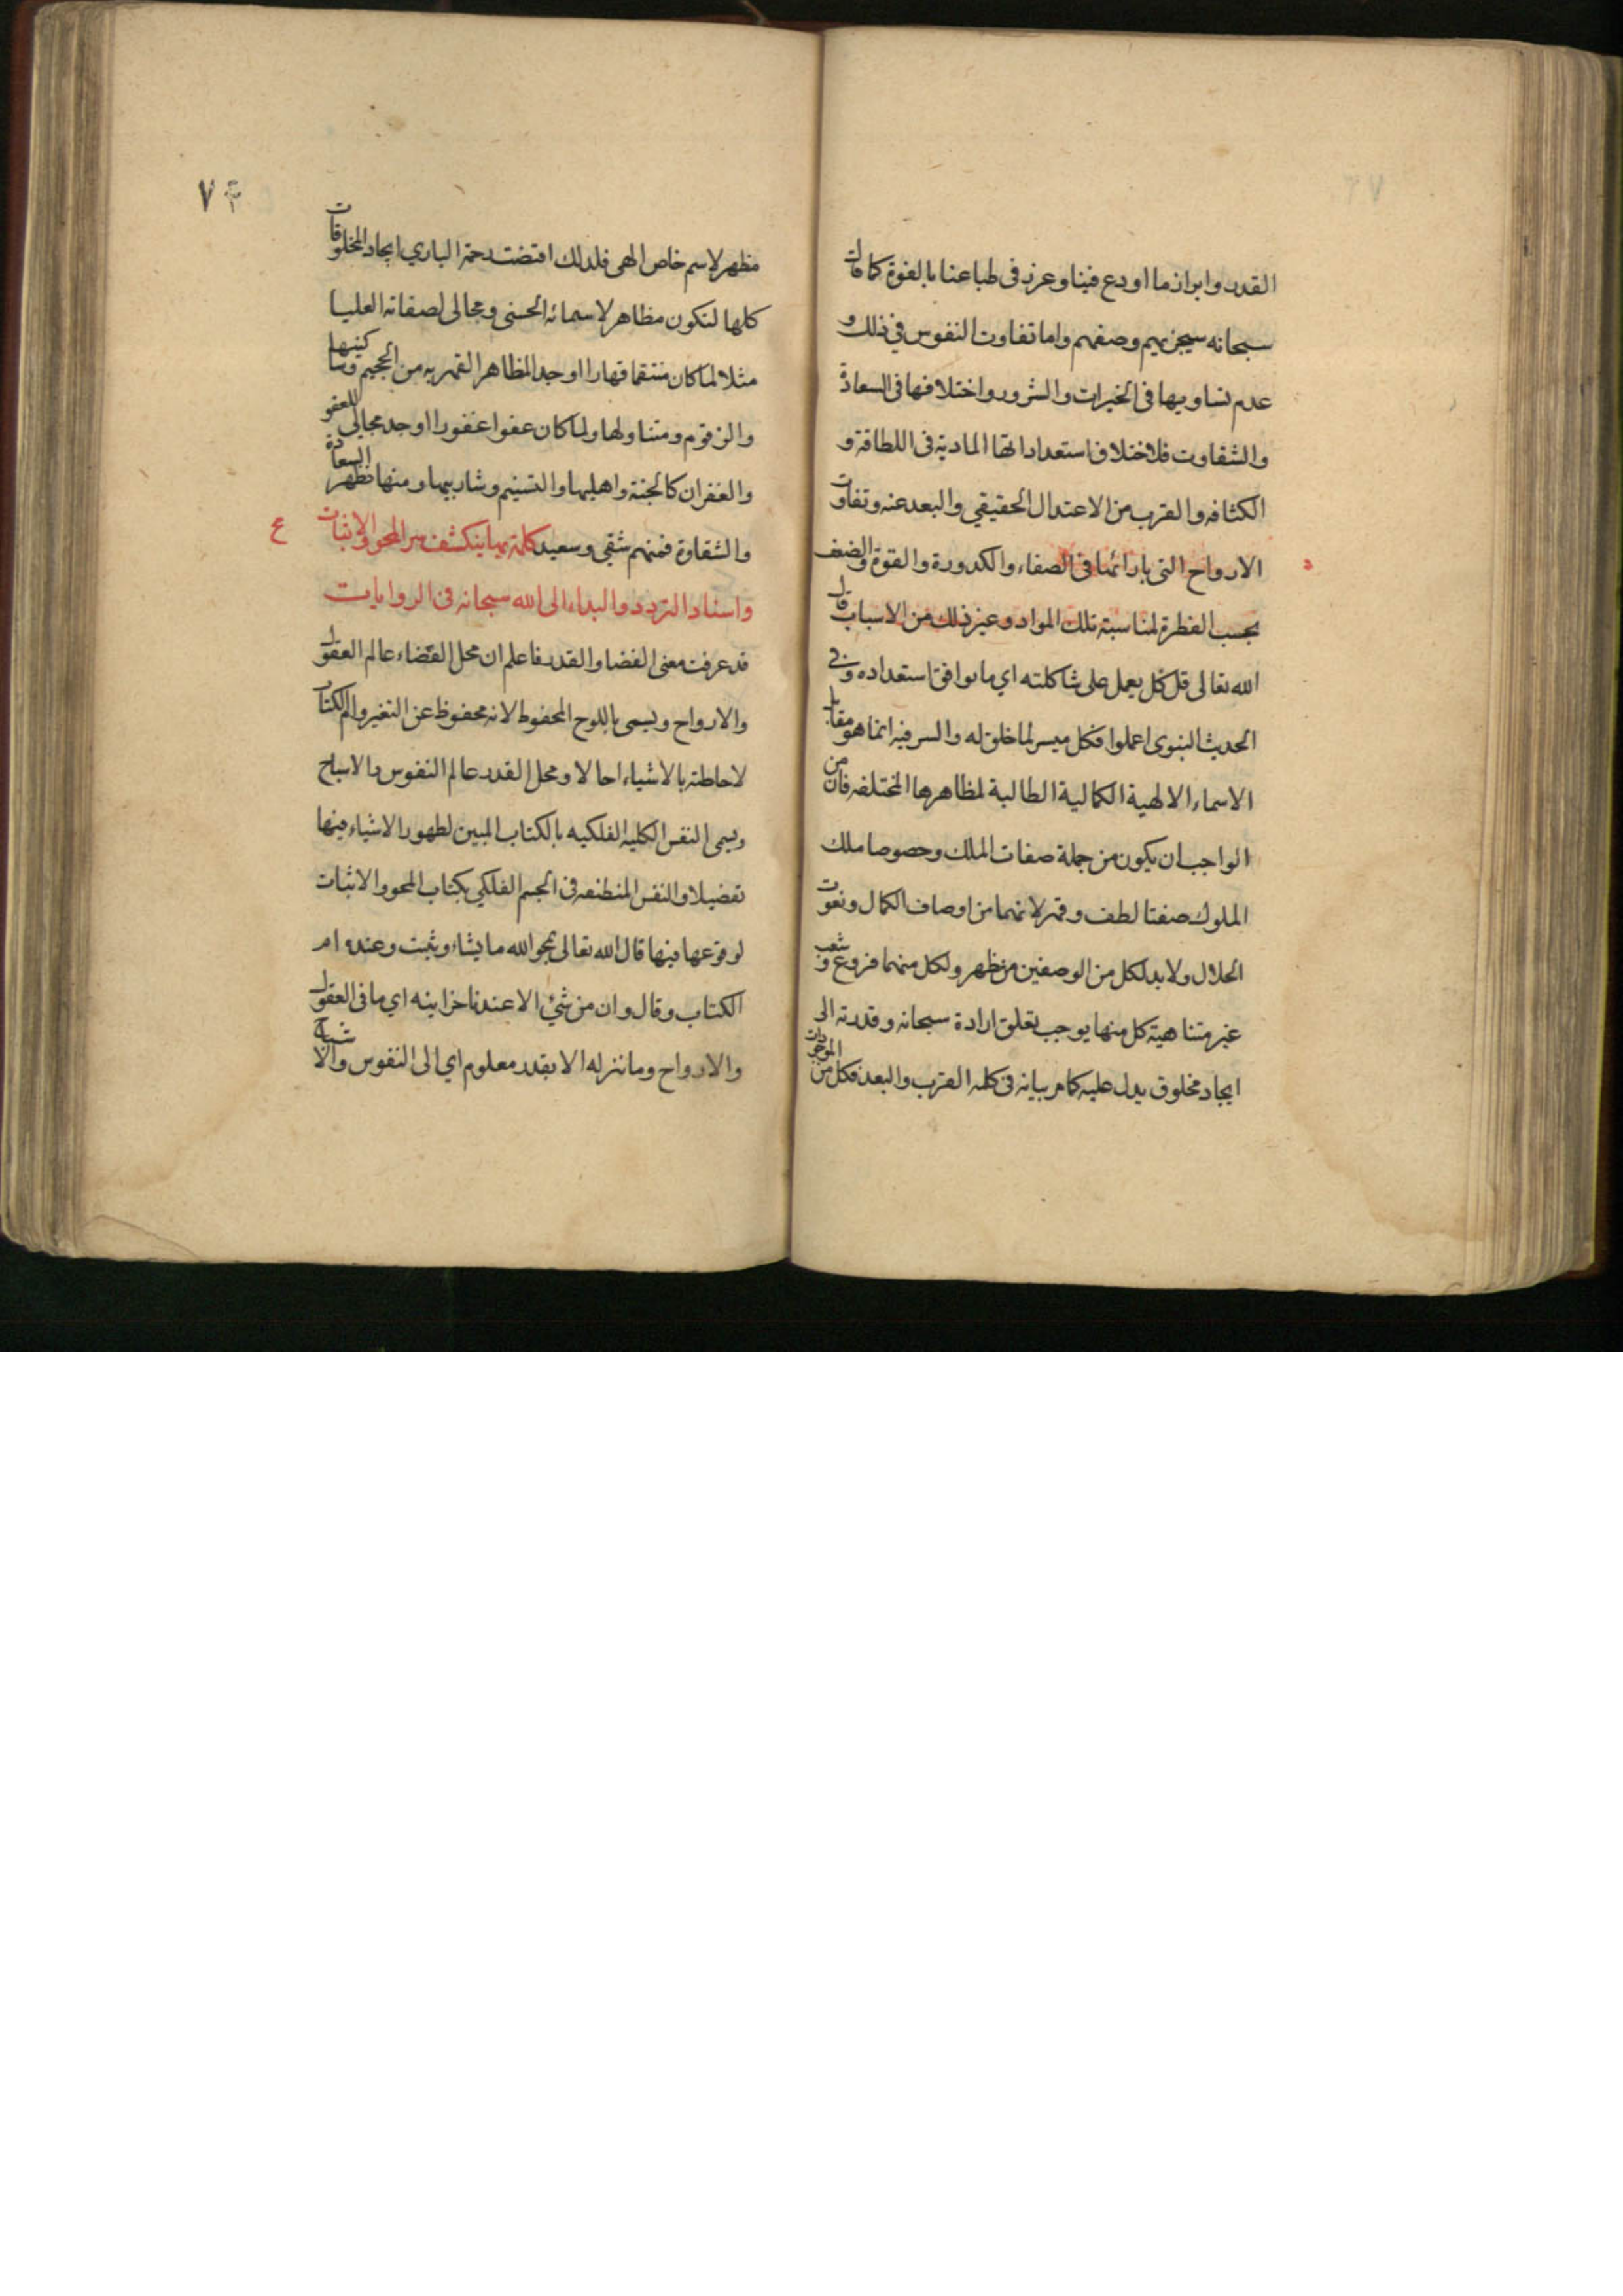 القدر وابراز ما اودع فينا وغرز فى طباعنا بالقوة كما قال
سبحانه سيجزيهم وصفهم واما تفاوت النفوس في ذلك و
عدم تساويها فى الخيرات والشرور واختلافها فى السعادة
والشقاوت فلاختلاف استعداداتها المادية فى اللطافة و
الكثافه والقرب من الاعتدال الحقيقي والبعد عنه وتفاوت
الارواح التى بازائها فى الصفاء والكدورة والقوة والضعف
بحسب الفطرة لمناسبة تلك المواد وغير ذلك من الاسباب قال
الله تعالى قل كل يعمل على شاكلته اي ما يوافق استعداده وفي
الحديث النبوى اعملوا فكل ميسر لما خلق له والسر فيه انما هو تقابل
الاسماء الالهية الكمالية الطالبة لمظاهرها المختلفه فان من
الواجب ان يكون من جملة صفات الملك وخصوصا ملك
الملوك صفتا لطف وقهر لانهما من اوصاف الكمال ونعوت
الجلال ولا بد لكل من الوصفين من مظهر ولكل منهما فروع وشعب
غير متناهية كل منها يوجب تعلق ارادة سبحانه وقدرته الى
ايجاد مخلوق يدل عليه كما مر بيانه فى كلمه القرب والبعد فكل من الموجودات
٧٤
مظهر لاسم خاص الهى فلذلك اقتضت رحمة الباري ايجاد المخلوقات
كلها لتكون مظاهر لاسمائه الحسنى ومجالى لصفاته العليا
مثلا لما كان منتقما قهارا اوجد المظاهر القهريه من الجحيم وساكنيها
والزقوم ومتناولها ولما كان عفوا غفورا اوجد مجالى للعفو
والغفران كالجنة واهليها والتسنيم وشاربيها ومنها تظهر السعادة
والشقاوة فمنهم شقي وسعيد كلمة بها ينكشف سر المحو والاثبات
ع
واسناد التردد والبداء الى الله سبحانه فى الروايات
قد عرفت معنى القضا والقدر فاعلم ان محل القضاء عالم العقول
والارواح ويسمى باللوح المحفوظ لانه محفوظ عن التغير وام الكتاب
لاحاطته بالاشياء اجمالا ومحل القدر عالم النفوس والاشباح
ويسمى النفس الكليه الفلكيه بالكتاب المبين لظهور الاشياء فيها
تفصيلا والنفس المنطبعه فى الجسم الفلكي بكتاب المحو والاثبات
لوقوعها فيها قال الله تعالى يمحو الله ما يشاء ويثبت وعنده ام
الكتاب وقال وان من شئ الا عندنا خزاينه اي ما فى العقول
والارواح وما ننزله الا بقدر معلوم اي الى النفوس والاشباح